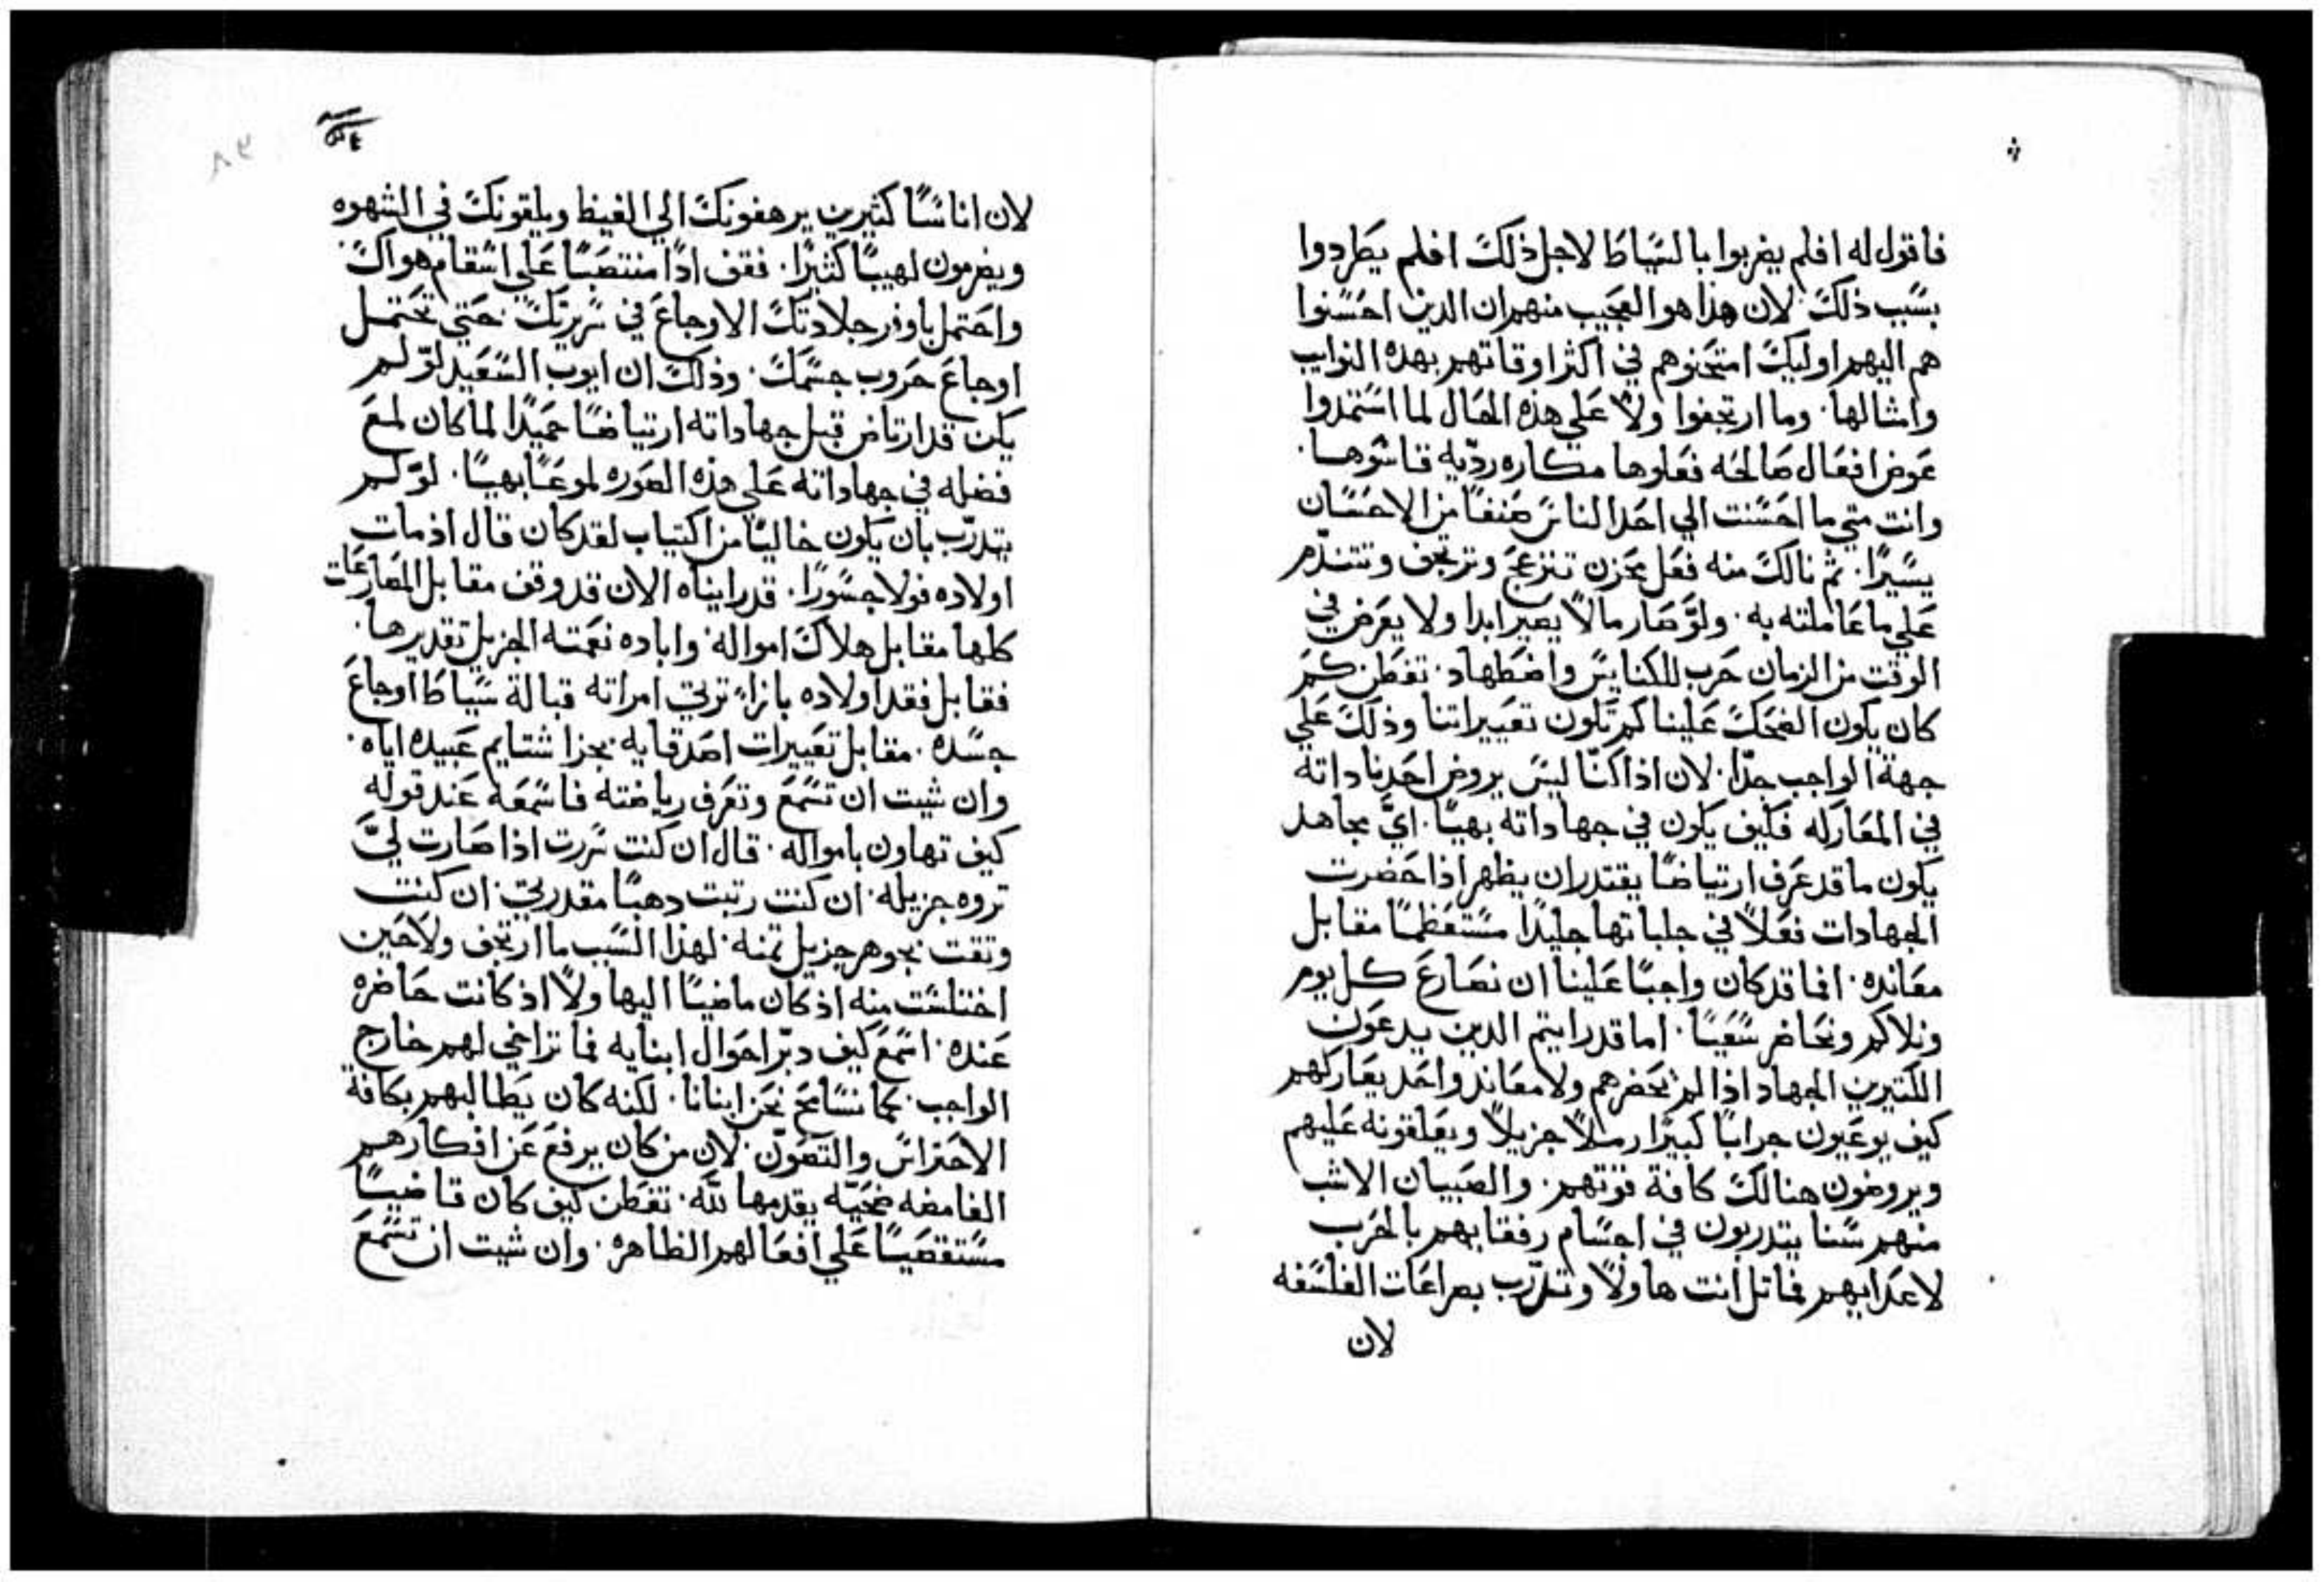 فاقول له افلم يضربوا بالسياط لاجل ذلك افلم يطردوا
بسبب ذلك. لان هذا هو العجيب منهم ان الدين احسنوا
هم اليهم اوليك امتحنوهم في اكثر اوقاتهم بهده النوايب
وامثالها. وما ارتجفوا ولا على هذه الحال لما استمدوا
عوض افعال صالحه فعلوها مكاره رديه قاسوها.
وانت متي ما احسنت الي احد الناس صنفا من الاحسان
يسيرا. ثم نالك منه فعل محزن تنزعج وترتجف وتتندم
علي ما عاملته به. ولو صار مالا يصير ابدا ولا يعرض في
الوقت من الزمان حرب للكنايس واضطهاد. تفطن كم
كان يكون الضحك علينا كم تكون تعييراتنا وذلك علي
جهة الواجب جدا. لان اذا كنا ليس يروض احدنا داته
في المعاركه فكيف يكون في جهاداته بهيا. اي مجاهد
يكون ما قد عرف ارتياضا يقتدر ان يظهر اذا حضرت
الجهادات فعلا في جلباتها جليدا مستعظما مقابل
معانده. افما قد كان واجبا علينا ان نصارع كل يوم
ونلاكم ونحاضر سعيا. اما قد رايتم الدين يدعون
الكتيرين الجهاد اذا لم يحضرهم ولا معاند واحد يعاركهم
كيف يوعيون جرابا كبيرا رملا جزيلا ويعلقونه عليهم
ويروضون هنالك كافة قوتهم. والصبيان الاشب
منهم سنا يتدربون في اجسام رفقايهم بالحرب
لاعدايهم فماتل انت هاولا وتدرب بصراعات الفلسفه
لان
لان اناسا كثيرين يرهفونك الي الغيظ ويلقونك في الشهوه
ويضرمون لهيبا كثيرا. فقف ادا منتصبا علي اسقام هواك
واحتمل باوفر جلادتك الاوجاع في سريرتك. حتي تحتمل
اوجاع حروب جسمك. وذلك ان ايوب السعيد لو لم
يكن قد ارتاض قبل جهاداته ارتياضا حميدا لما كان لمع
فضله في جهاداته علي هذه الصوره لموعا بهيا. لو لم
يتدرب بان يكون خاليا من اكتياب لقد كان قال اذ مات
اولاده قولا جسورا. قد رايناه الان قد وقف مقابل المصارعات
كلها مقابل هلاك امواله. واباده نعمته الجزيل تقديرها.
فقابل فقد اولاده بازاء ترتي امراته قبالة سياط اوجاع
جسده. مقابل تعييرات اصدقايه. بجزا شتايم عبيده اياه.
وان شيت ان تسمع وتعرف رياضته فاسمعه عند قوله
كيف تهاون بامواله. قال ان كنت سررت اذا صارت لي
تروه جزيله. ان كنت رتبت دهبا مقدرتي. ان كنت
وتقت بجوهر جزيل تمنه. لهذا السبب ما ارتجف ولا حين
اختلست منه اذ كان ماضيا اليها ولا اذ كانت حاضره
عنده. اسمع كيف دبر احوال ابنايه فما تراخي لهم خارج
الواجب. كما نسامح نحن ابنانا. لكنه كان يطالبهم بكافة
الاحتراس والتصون. لان من كان يرفع عن افكارهم
الغامضه ضحيه يقدمها لله. تفطن كيف كان قاضيا
مستقصيا علي افعالهم الظاهره. وان شيت ان تسمع